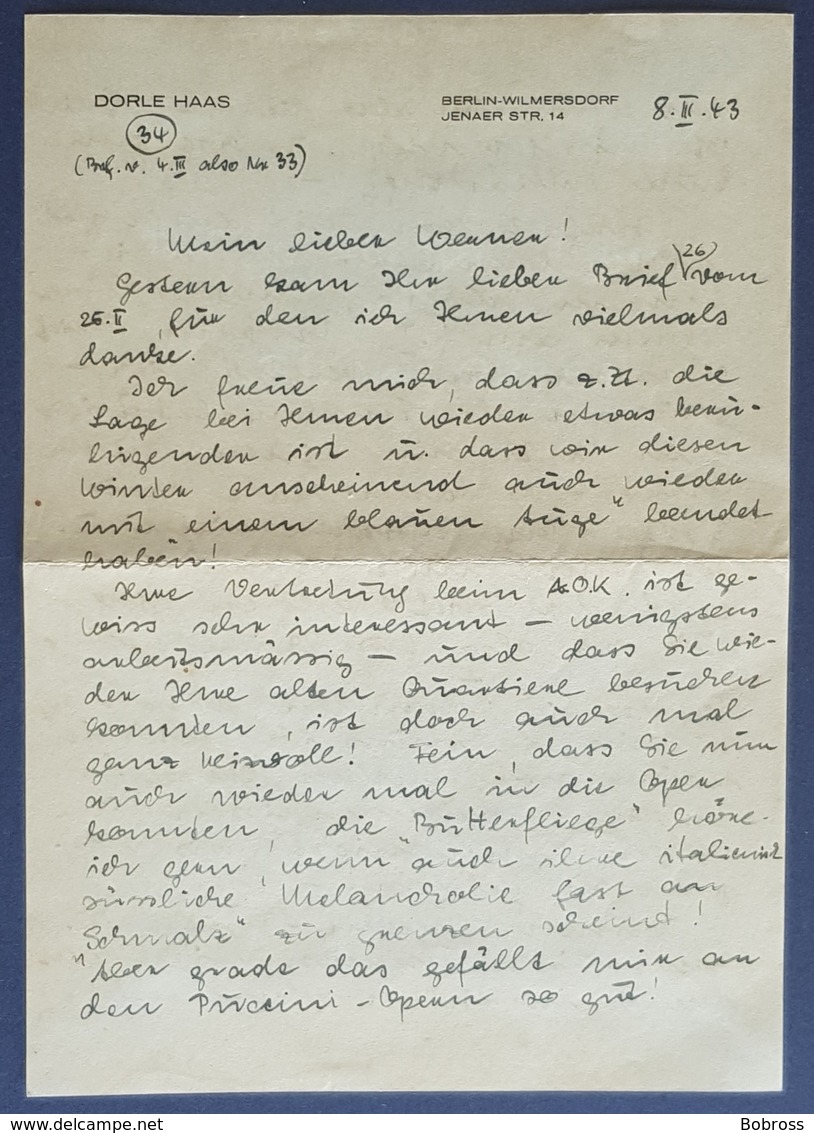 DORLE HAAS
BERLIN-WILMERSDORF
JENAER STR. 14
8.III.43
34
(Brf. v. 4.III also Nr 33)
Mein lieber Werner!
Gestern kam Ihr lieber Brief (26) vom
25.II, für den ich Ihnen vielmals
danke.
Ich freue mich, dass z.Zt. die
Lage bei Ihnen wieder etwas beru-
higender ist u. dass wir diesen
Winter anscheinend auch wieder
mit einem blauen Auge" beendet
haben!
Ihre Vertretung beim A.O.K. ist ge-
wiss sehr interessant – wenigstens
arbeitsmässig – und dass Sie wie-
der Ihre alten Quartiere besuchen
konnten, ist doch auch mal
ganz reizvoll! Fein, dass Sie nun
auch wieder mal in die Oper
konnten, die "Butterfliege" höre
ich gern, wenn auch ihre italienisch
süssliche Melancholie fast an
"Schmalz" zu grenzen scheint!
Aber grade das gefällt mir an
den Puccini-Opern so gut!
delcampe.net
Bobross